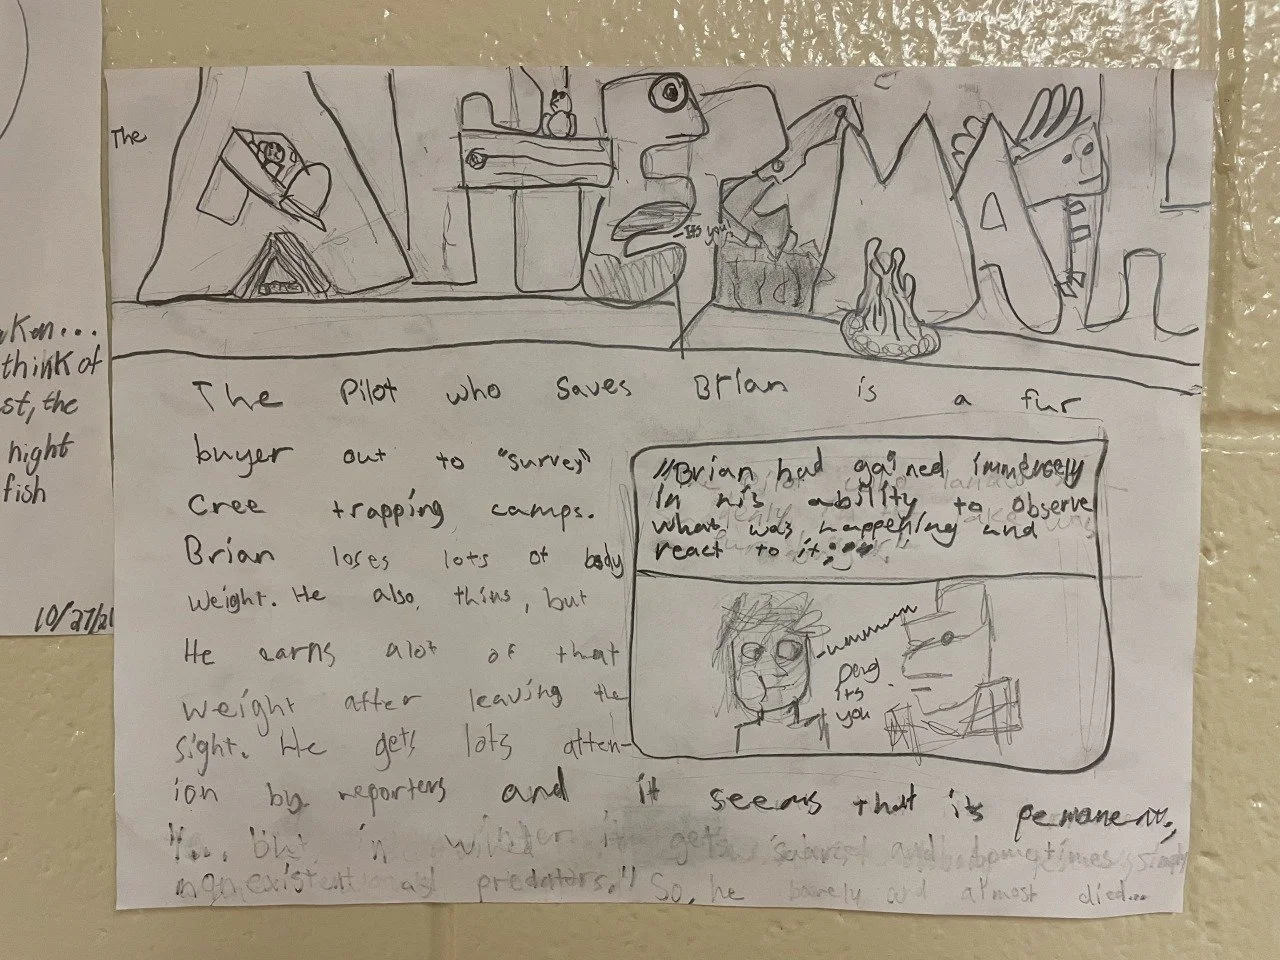 think of
st, the
night
fish
10/27/21
The
AFTERMATH
The Pilot who saves Brian is a fur
buyer out to "survey"
Cree trapping camps.
Brian loses lots of body
weight. He also, thins, but
He earns alot of that
weight after leaving the
sight. He gets lots atten-
ion by reporters and it seems that its pemanent.,
"... but in winter it gets and sometimes simply
predators." So, he barely and almost died...
"Brian had gained immensely
in his ability to observe
what was happening and
react to it;
pong
its
you